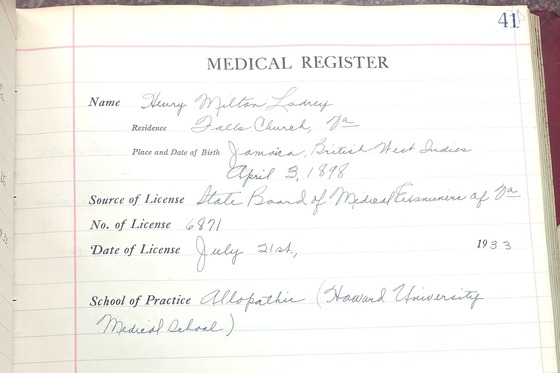 41
MEDICAL REGISTER
Name Henry Milton Ladrey
Residence Falls Church, Va
Place and Date of Birth Jamaica, British West Indies
April 3, 1898
Source of License State Board of Medical Examiners of Va
No. of License 6871
Date of License July 21st, 1933
School of Practice Allopathic (Howard University
Medical School)